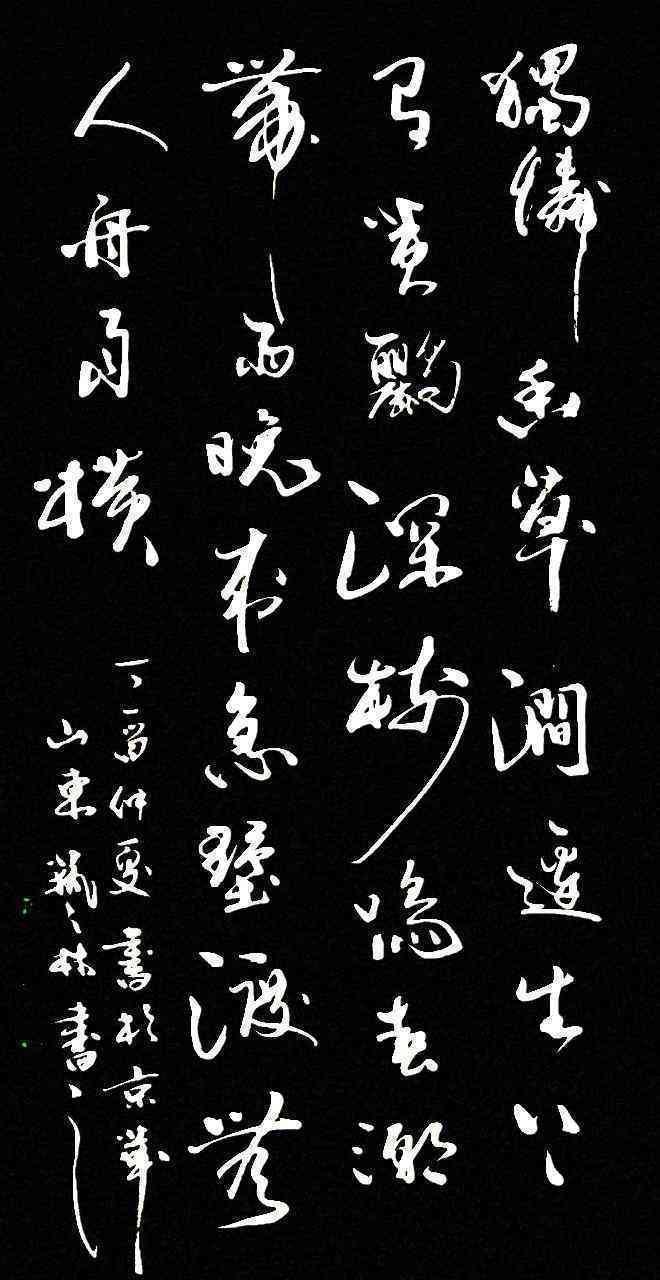 獨憐幽草澗邊生上
有黃鸝深樹鳴春潮
帶雨晚來急墅渡無
人舟自橫
丁酉仲夏書於京華
山東林書